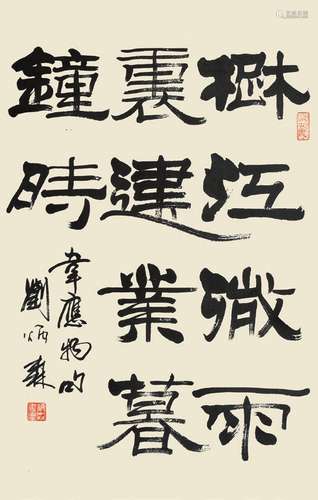 楚江微雨
裏建業暮
鐘時
韋應物句
劉炳森